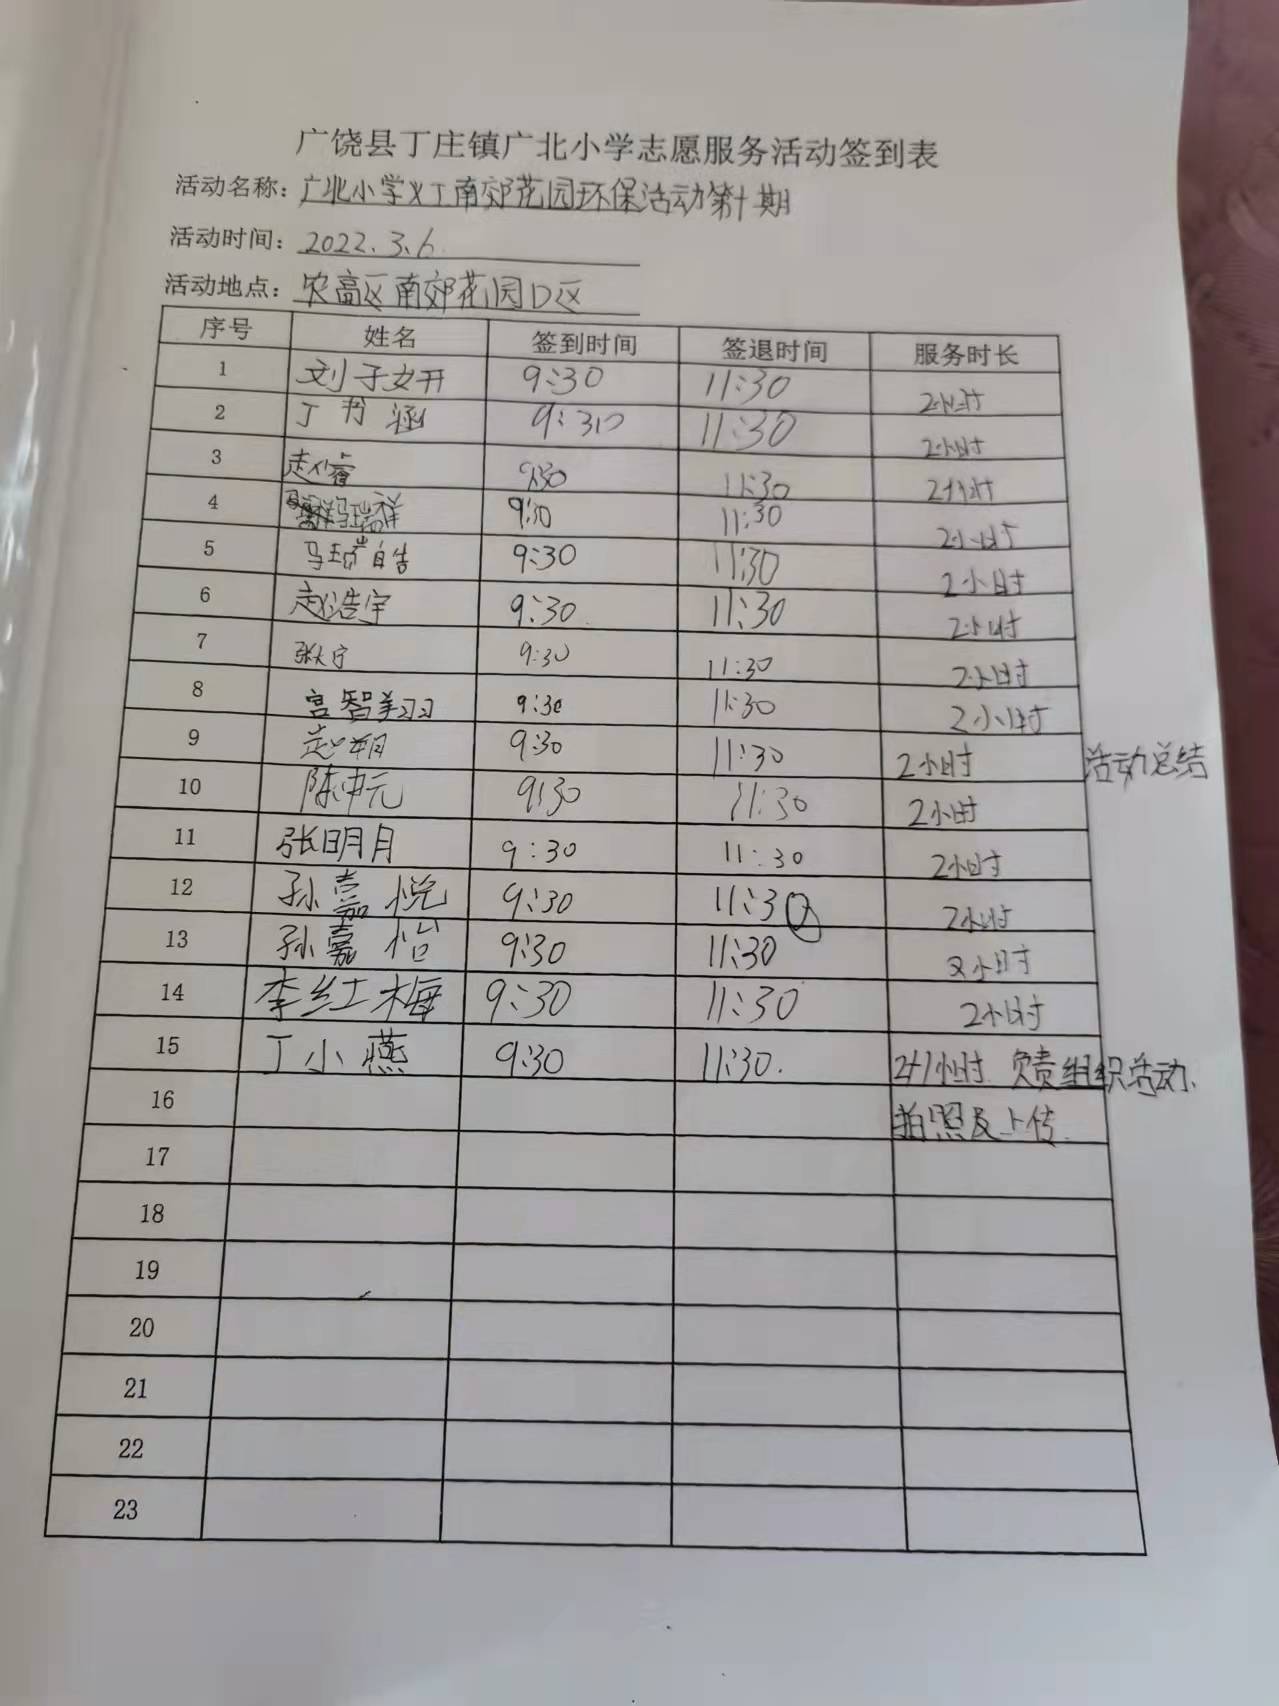 广饶县丁庄镇广北小学志愿服务活动签到表
活动名称：广北小学义工南郊花园环保活动第十期
活动时间：2022.3.6.
活动地点：农高区南郊花园D区
序号 姓名 签到时间 签退时间 服务时长
1 刘子妍 9:30 11:30 2小时
2 丁书涵 9:30 11:30 2小时
3 赵睿 9:30 11:30 2小时
4 马瑞祥 9:30 11:30 2小时
5 马 9:30 11:30 2小时
6 赵浩宇 9:30 11:30 2小时
7 张 宁 9:30 11:30 2小时
8 宫智翔 9:30 11:30 2小时
9 赵 9:30 11:30 2小时 活动总结
10 陈中元 9:30 11:30 2小时
11 张明月 9:30 11:30 2小时
12 孙嘉悦 9:30 11:30 2小时
13 孙嘉怡 9:30 11:30 2小时
14 李红梅 9:30 11:30 2小时
15 丁小燕 9:30 11:30. 2+1小时 负责组织活动、
16 拍照及上传.
17
18
19
20
21
22
23